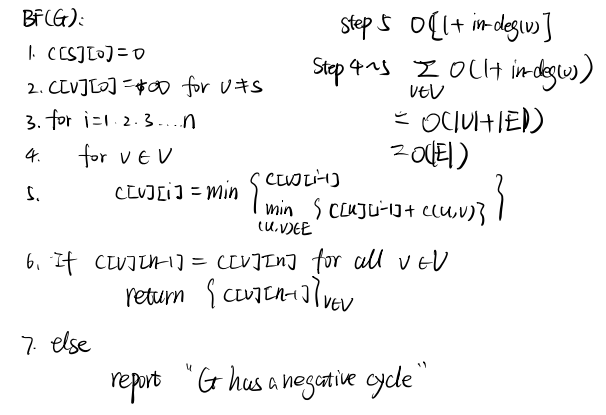 BF(G):
1. C[S][0]=0
2. C[V][0]=+∞ for v≠s
3. for i=1.2.3....n
4. for v∈V
5. C[V][i]=min { C[v][i-1]
min {C[u][i-1]+c(u,v)} }
(u,v)∈E
6. If C[V][n-1]=C[V][n] for all v∈V
return {C[V][n-1]}v∈V
7. else
report "G has a negative cycle"
Step 5 O[1+in-deg(v)]
Step 4~5 Σ O(1+in-deg(v))
v∈V
= O(|V|+|E|)
=O(|E|)